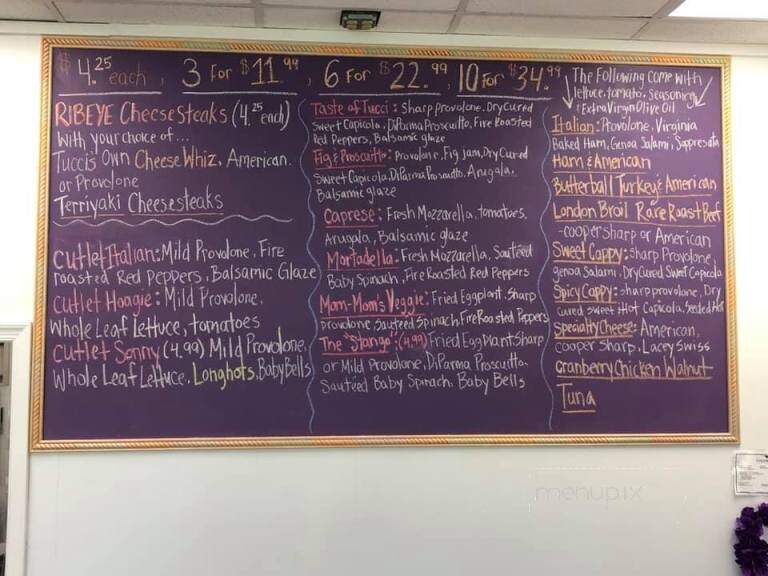 $4.25 each, 3 For $11.99, 6 For $22.99, 10 For $34.99
RIBEYE CheeseSteaks (4.25 each)
With your choice of...
Tucci's Own Cheese Whiz, American
or Provolone
Terriyaki Cheesesteaks
Cutlet Italian: Mild Provolone, Fire
roasted Red Peppers, Balsamic Glaze
Cutlet Hoagie: Mild Provolone,
Whole Leaf Lettuce, tomatoes
Cutlet Sonny (4.99) Mild Provolone,
Whole Leaf Lettuce, Longhots, Baby Bells
Taste of Tucci: Sharp Provolone, Dry Cured
Sweet Capicola, DiParma Proscuitto, Fire Roasted
Red Peppers, Balsamic glaze
Fig & Proscuitto: Provolone, Fig jam, Dry Cured
Sweet Capicola, DiParma Proscuitto, Arugala,
Balsamic glaze
Caprese: Fresh Mozzarella, tomatoes,
Arugala, Balsamic glaze
Mortadella: Fresh Mozzarella, Sautéed
Baby Spinach, Fire Roasted Red Peppers
Mom-Mom's Veggie: Fried Eggplant, Sharp
provolone, Sautéed Spinach, Fire Roasted Peppers
The "Stango": (4.99) Fried EggPlant Sharp
or Mild Provolone, DiParma Proscuitto,
Sautéed Baby Spinach, Baby Bells
The Following come with
lettuce, tomato, seasoning
& Extra Virgin Olive Oil
Italian: Provolone, Virginia
Baked Ham, Genoa Salami, Suppresata
Ham & American
Butterball Turkey & American
London Broil Rare Roast Beef
-cooper sharp or American
Sweet Cappy: Sharp Provolone,
genoa Salami, Dry Cured Sweet Capicola
Spicy Cappy: sharp provolone, Dry
cured sweet & Hot Capicola, Seeded
Specialty Cheese: American,
Cooper Sharp, Lacey Swiss
Cranberry Chicken Walnut
Tuna
menupix